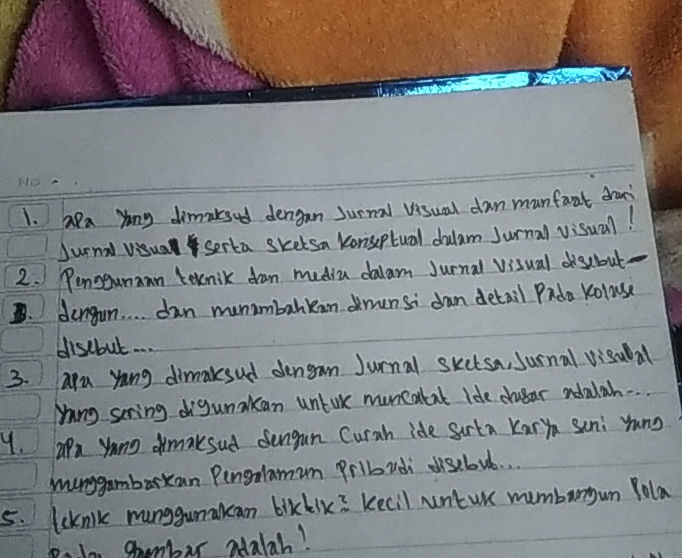 No
1. apa yang dimaksud dengan Jurnal Visual dan manfaat dari
Jurnal visual serta sketsa konseptual dalam Jurnal visual!
2. Penggunaan teknik dan media dalam Jurnal Visual disebut
dengan.... dan menambahkan dimensi dan detail Pada Kolase
disebut...
3. apa yang dimaksud dengan Jurnal sketsa, Jurnal visual
yang sering digunakan untuk mencatat Ide dasar adalah...
4. apa yang dimaksud dengan Curah ide serta karya seni yang
menggambarkan Pengalaman Pribadi disebut...
5. teknik menggunakan bikbik² kecil untuk membangun Pola
Pada gambar adalah!